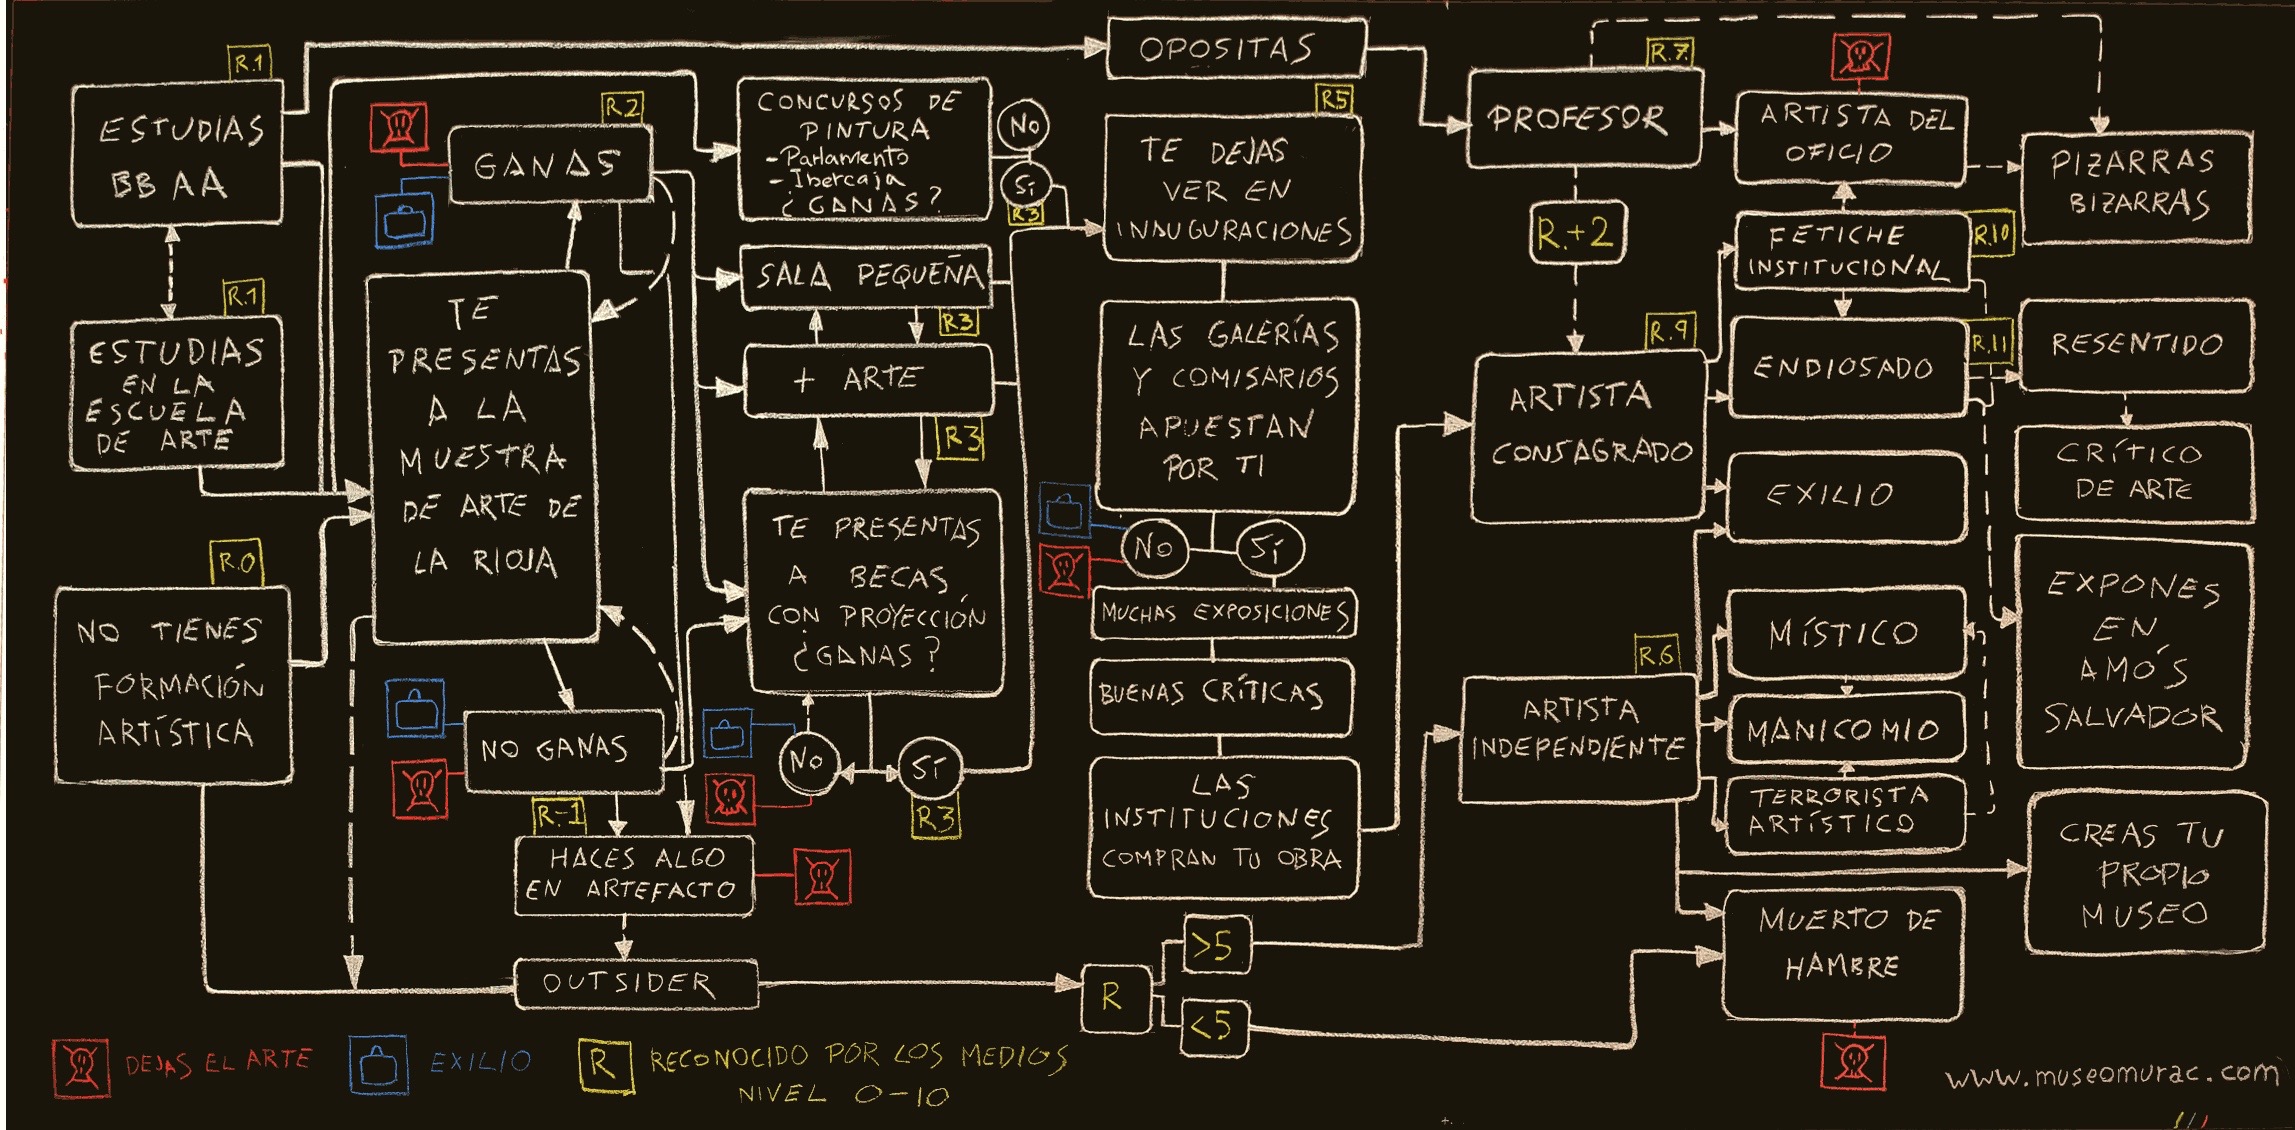 R.1
ESTUDIAS
BBAA
R.1
ESTUDIAS
EN LA
ESCUELA
DE ARTE
R.0
NO TIENES
FORMACIÓN
ARTÍSTICA
R2
GANAS
TE
PRESENTAS
A LA
MUESTRA
DE ARTE DE
LA RIOJA
NO GANAS
R-1
HACES ALGO
EN ARTEFACTO
OUTSIDER
CONCURSOS DE
PINTURA
- Parlamento
- Ibercaja
¿GANAS?
No
Sí
R3
SALA PEQUEÑA
R3
+ ARTE
R3
TE PRESENTAS
A BECAS
CON PROYECCIÓN
¿GANAS?
No
Sí
R3
OPOSITAS
R5
TE DEJAS
VER EN
INAUGURACIONES
LAS GALERÍAS
Y COMISARIOS
APUESTAN
POR TI
No
Sí
MUCHAS EXPOSICIONES
BUENAS CRÍTICAS
LAS
INSTITUCIONES
COMPRAN TU OBRA
R
>5
<5
R.7
PROFESOR
R.+2
R.9
ARTISTA
CONSAGRADO
R.6
ARTISTA
INDEPENDIENTE
ARTISTA DEL
OFICIO
FETICHE
INSTITUCIONAL
R.10
ENDIOSADO
R.11
EXILIO
MÍSTICO
MANICOMIO
TERRORISTA
ARTÍSTICO
MUERTO DE
HAMBRE
PIZARRAS
BIZARRAS
RESENTIDO
CRÍTICO
DE ARTE
EXPONES
EN
AMÓS
SALVADOR
CREAS TU
PROPIO
MUSEO
DEJAS EL ARTE
EXILIO
R
RECONOCIDO POR LOS MEDIOS
NIVEL 0-10
www.museomurac.com